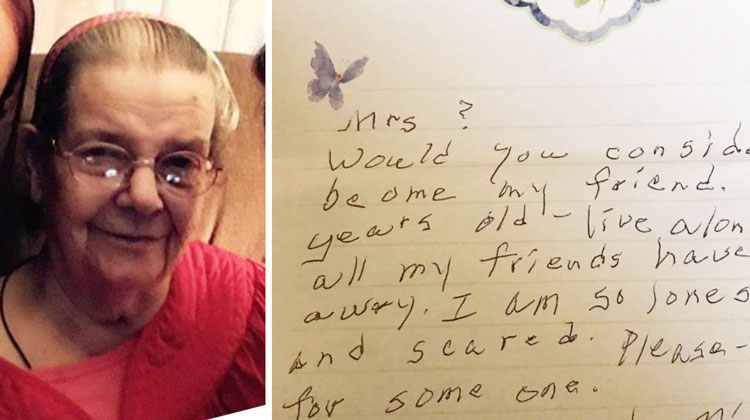 Mrs ?
Would you consid
be ome my friend.
years old - live alon
all my friends have
away. I am so lones
and scared. Please -
for some one.